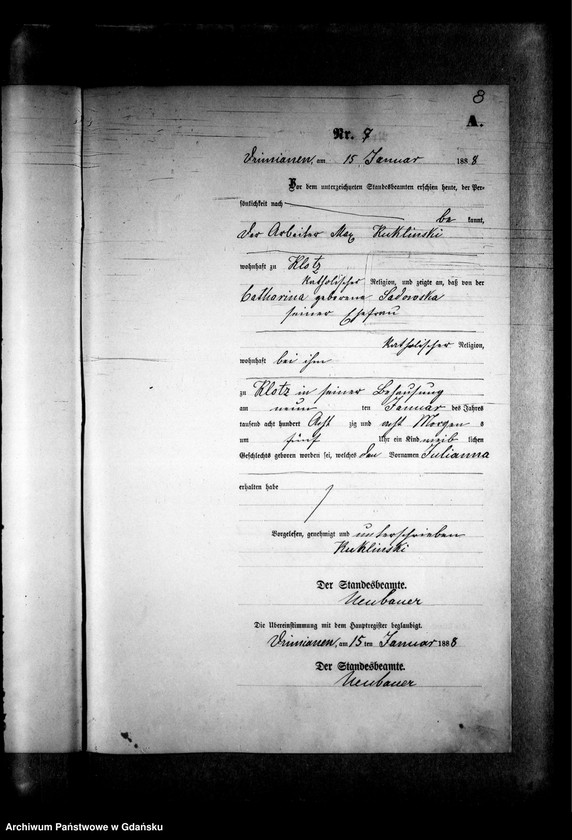 8
A.
Nr. 7
am 15 Januar 1888
Vor dem unterzeichneten Standesbeamten erschien heute, der Per-
sönlichkeit nach
be kannt,
der Arbeiter Max Kuklinski
wohnhaft zu Klotz
katholischer Religion, und zeigte an, daß von der
Catharina geborene Sadowska
seiner Ehefrau
katholischer Religion,
wohnhaft bei ihm
zu Klotz in seiner Behausung
am neun ten Januar des Jahres
tausend acht hundert Acht zig und acht Morgens
um fünf Uhr ein Kind weib lichen
Geschlechts geboren worden sei, welches den Vornamen Julianna
erhalten habe
Vorgelesen, genehmigt und unterschrieben
Kuklinski
Der Standesbeamte.
Neubauer
Die Übereinstimmung mit dem Hauptregister beglaubigt.
am 15 ten Januar 1888
Der Standesbeamte.
Neubauer
Archiwum Państwowe w Gdańsku